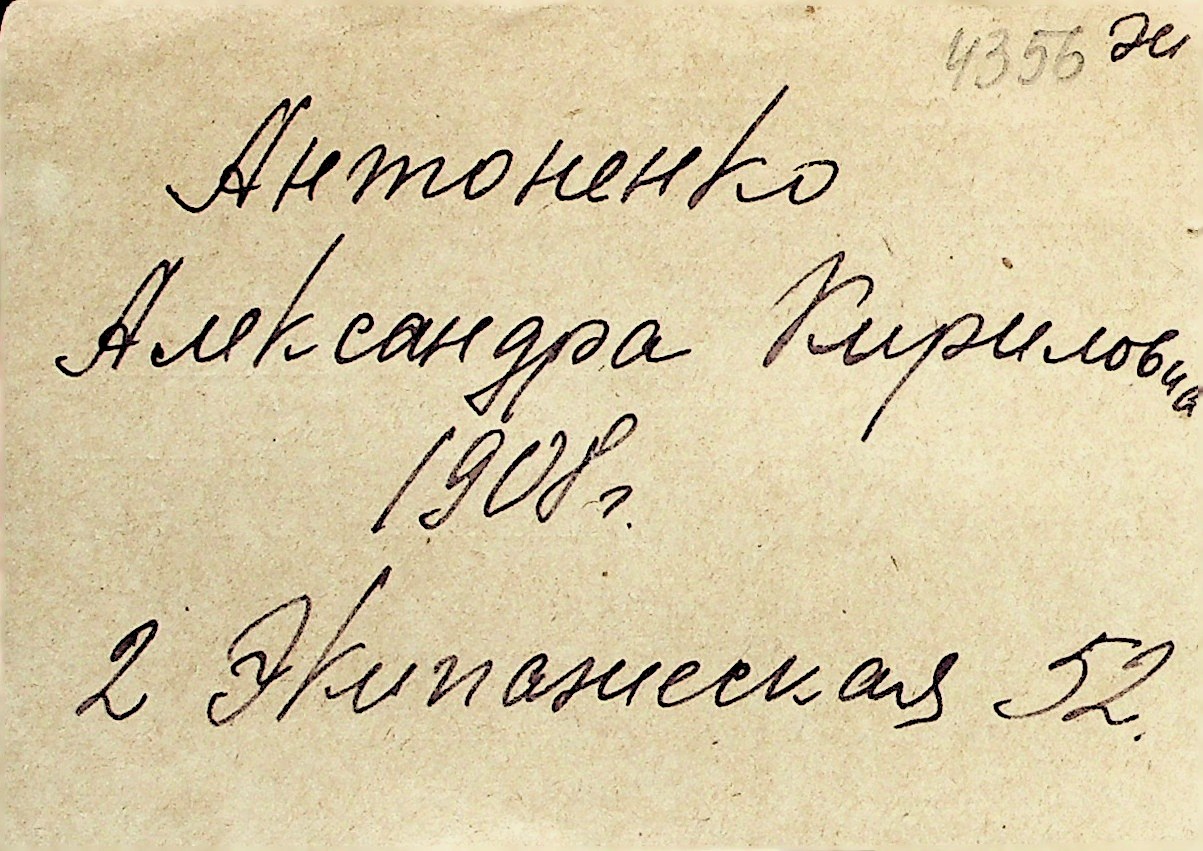 4356 эк
Антоненко
Александра Кириловна
1908г.
2 Экипажеская 52.